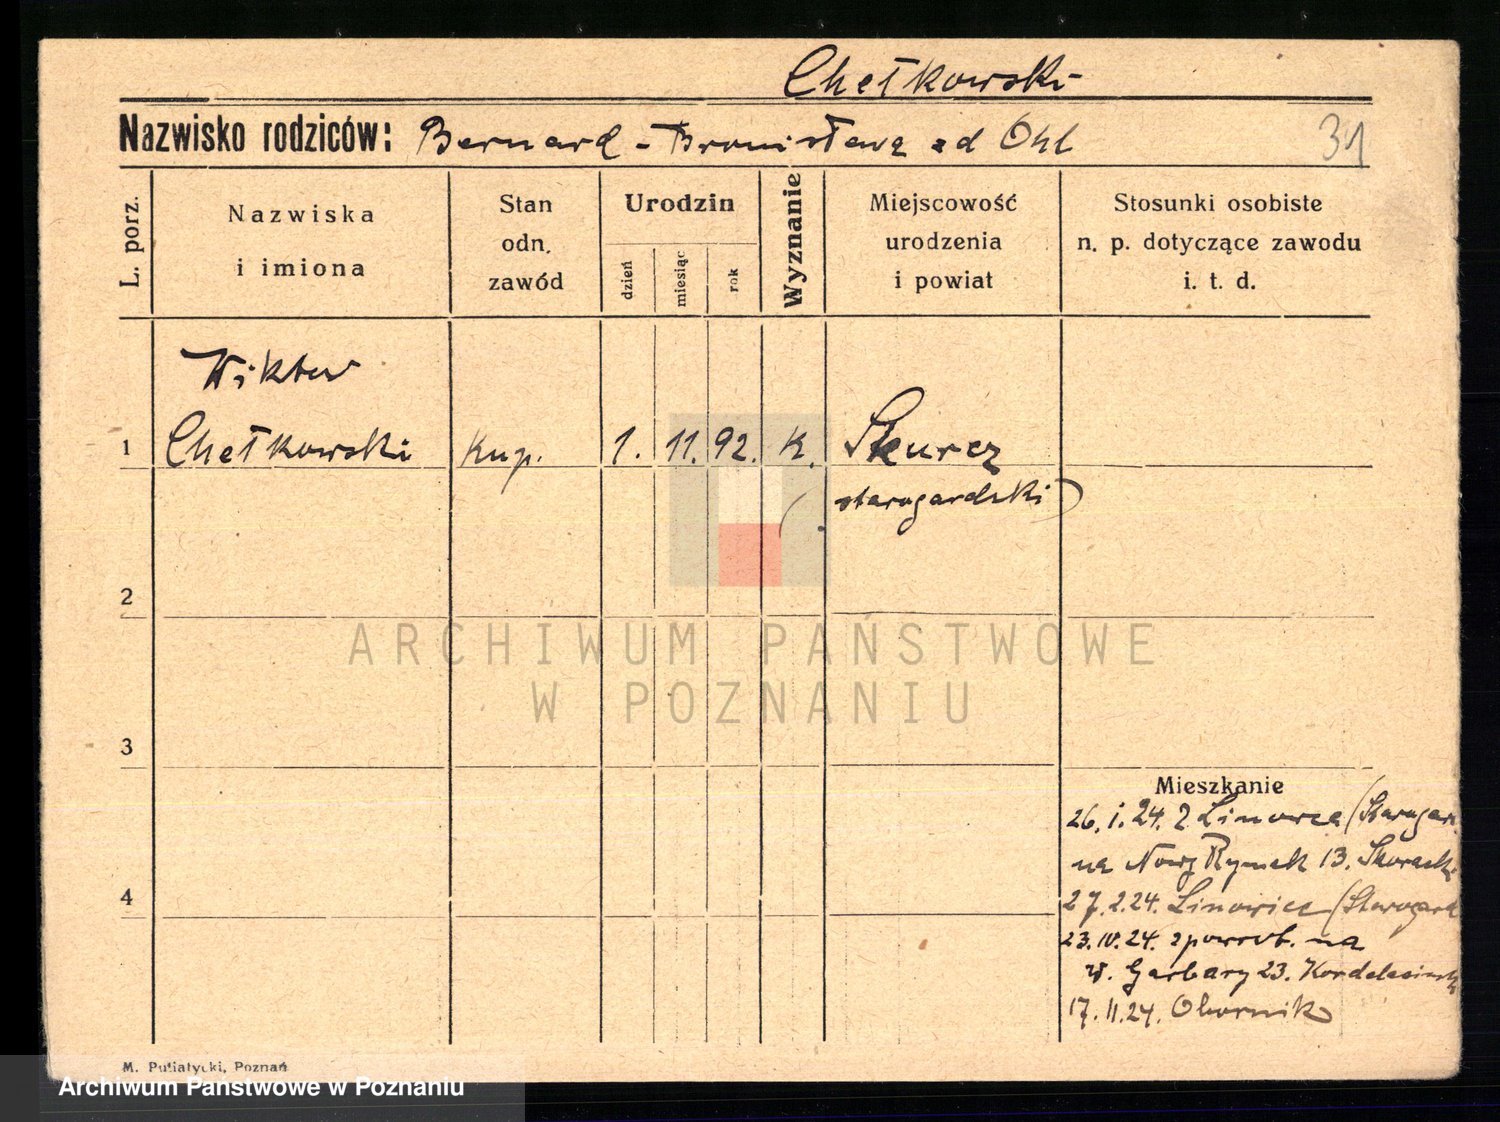 Chełkowski
Nazwisko rodziców: Bernard - Bronisława zd Ohl
31
L. porz.
Nazwiska
i imiona
Stan
odn.
zawód
Urodzin
dzień
miesiąc
rok
Wyznanie
Miejscowość
urodzenia
i powiat
Stosunki osobiste
n. p. dotyczące zawodu
i. t. d.
Wiktor
1 Chełkowski kup. 1. 11. 92. K. Skurcz
(starogardzki)
2
ARCHIWUM PAŃSTWOWE
W POZNANIU
3
Mieszkanie
26. I. 24. z (Starogar
na Nowy Rynek 13.
4
27. 2. 24. Linowiec (Starogard
23. IV. 24. zpowrot. na
W. Garbary 23.
17. II. 24. Oborniki
M. Putiatycki, Poznań
Archiwum Państwowe w Poznaniu